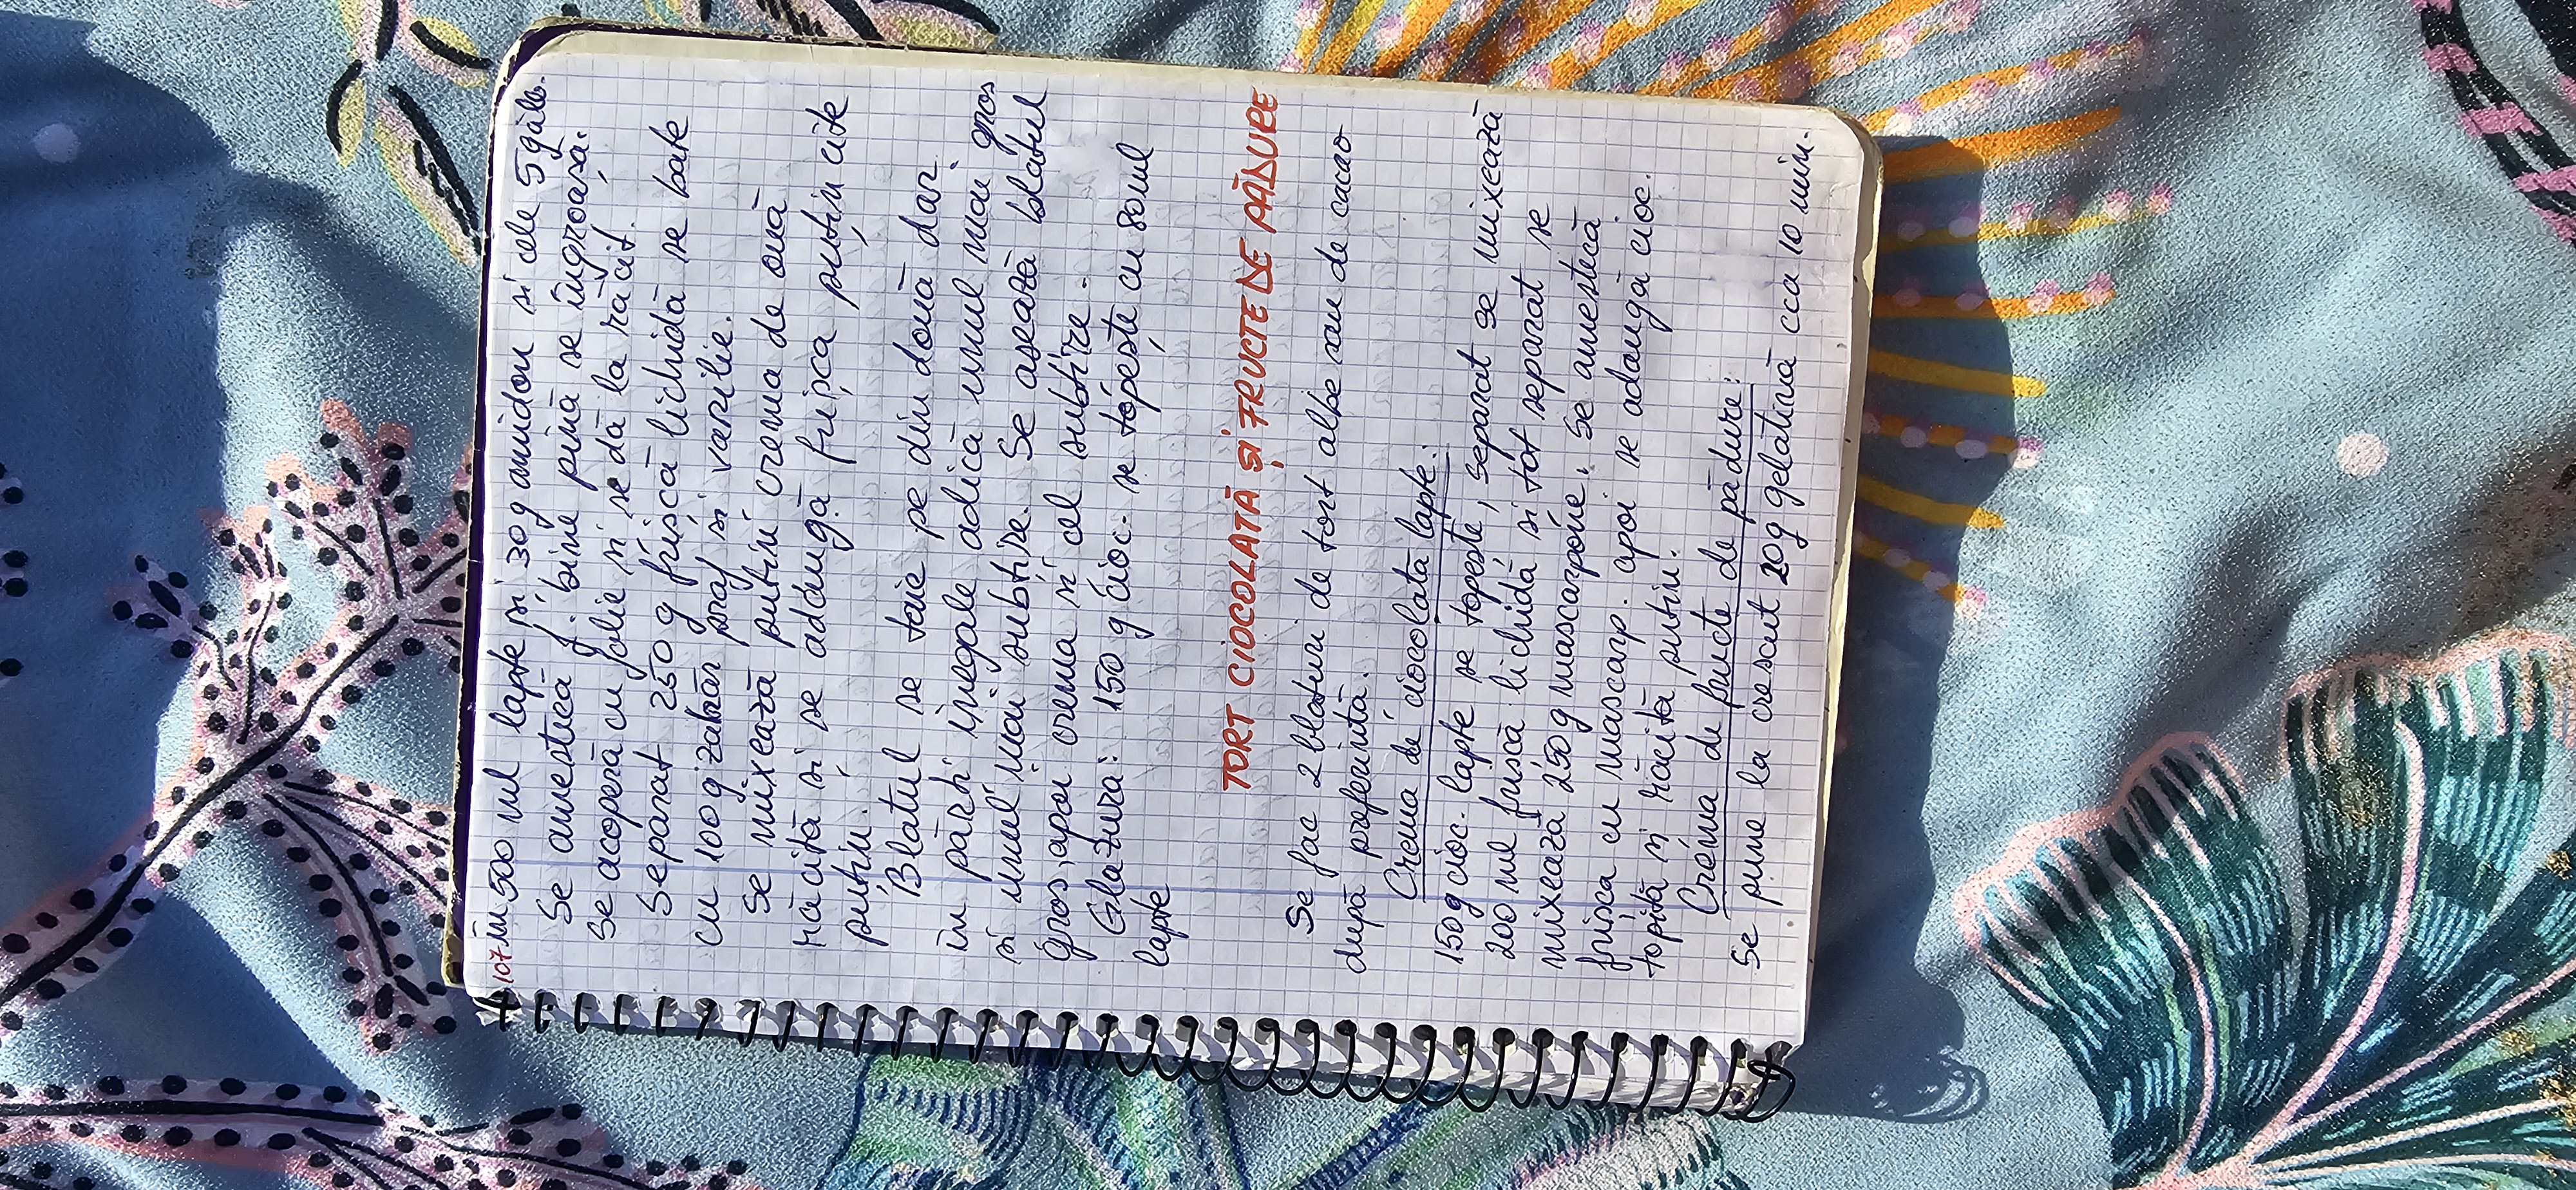 107 în 500 ml lapte și 30g amidon și cele 5 gălb.
Se amestecă f. bine pînă se îngroașă.
Se acoperă cu folie și se dă la răcit.
Separat 250 g frișcă lichidă se bate
cu 100g zahăr praf și vanilie.
Se mixează puțin crema de ouă
răcită și se adaugă frișca puțin cîte
puțin.
Blatul se taie pe din două dar
în părți inegale adică unul mai gros
și unul mai subțire. Se așează blatul
gros, apoi crema și cel subțire.
Glazura: 150 g cioc. se topește cu 80ml
lapte
TORT CIOCOLATĂ ȘI FRUCTE DE PĂDURE
Se fac 2 blaturi de tort albe sau de cacao
după preferință.
Crema de ciocolată lapte:
150g cioc. lapte se topește, separat se mixează
200 ml frișcă lichidă și tot separat se
mixează 250g mascarpone. Se amestecă
frișca cu mascarp. apoi se adaugă cioc.
topită și răcită puțin.
Crema de fructe de pădure:
Se pune la crescut 20g gelatină cca 10 min.